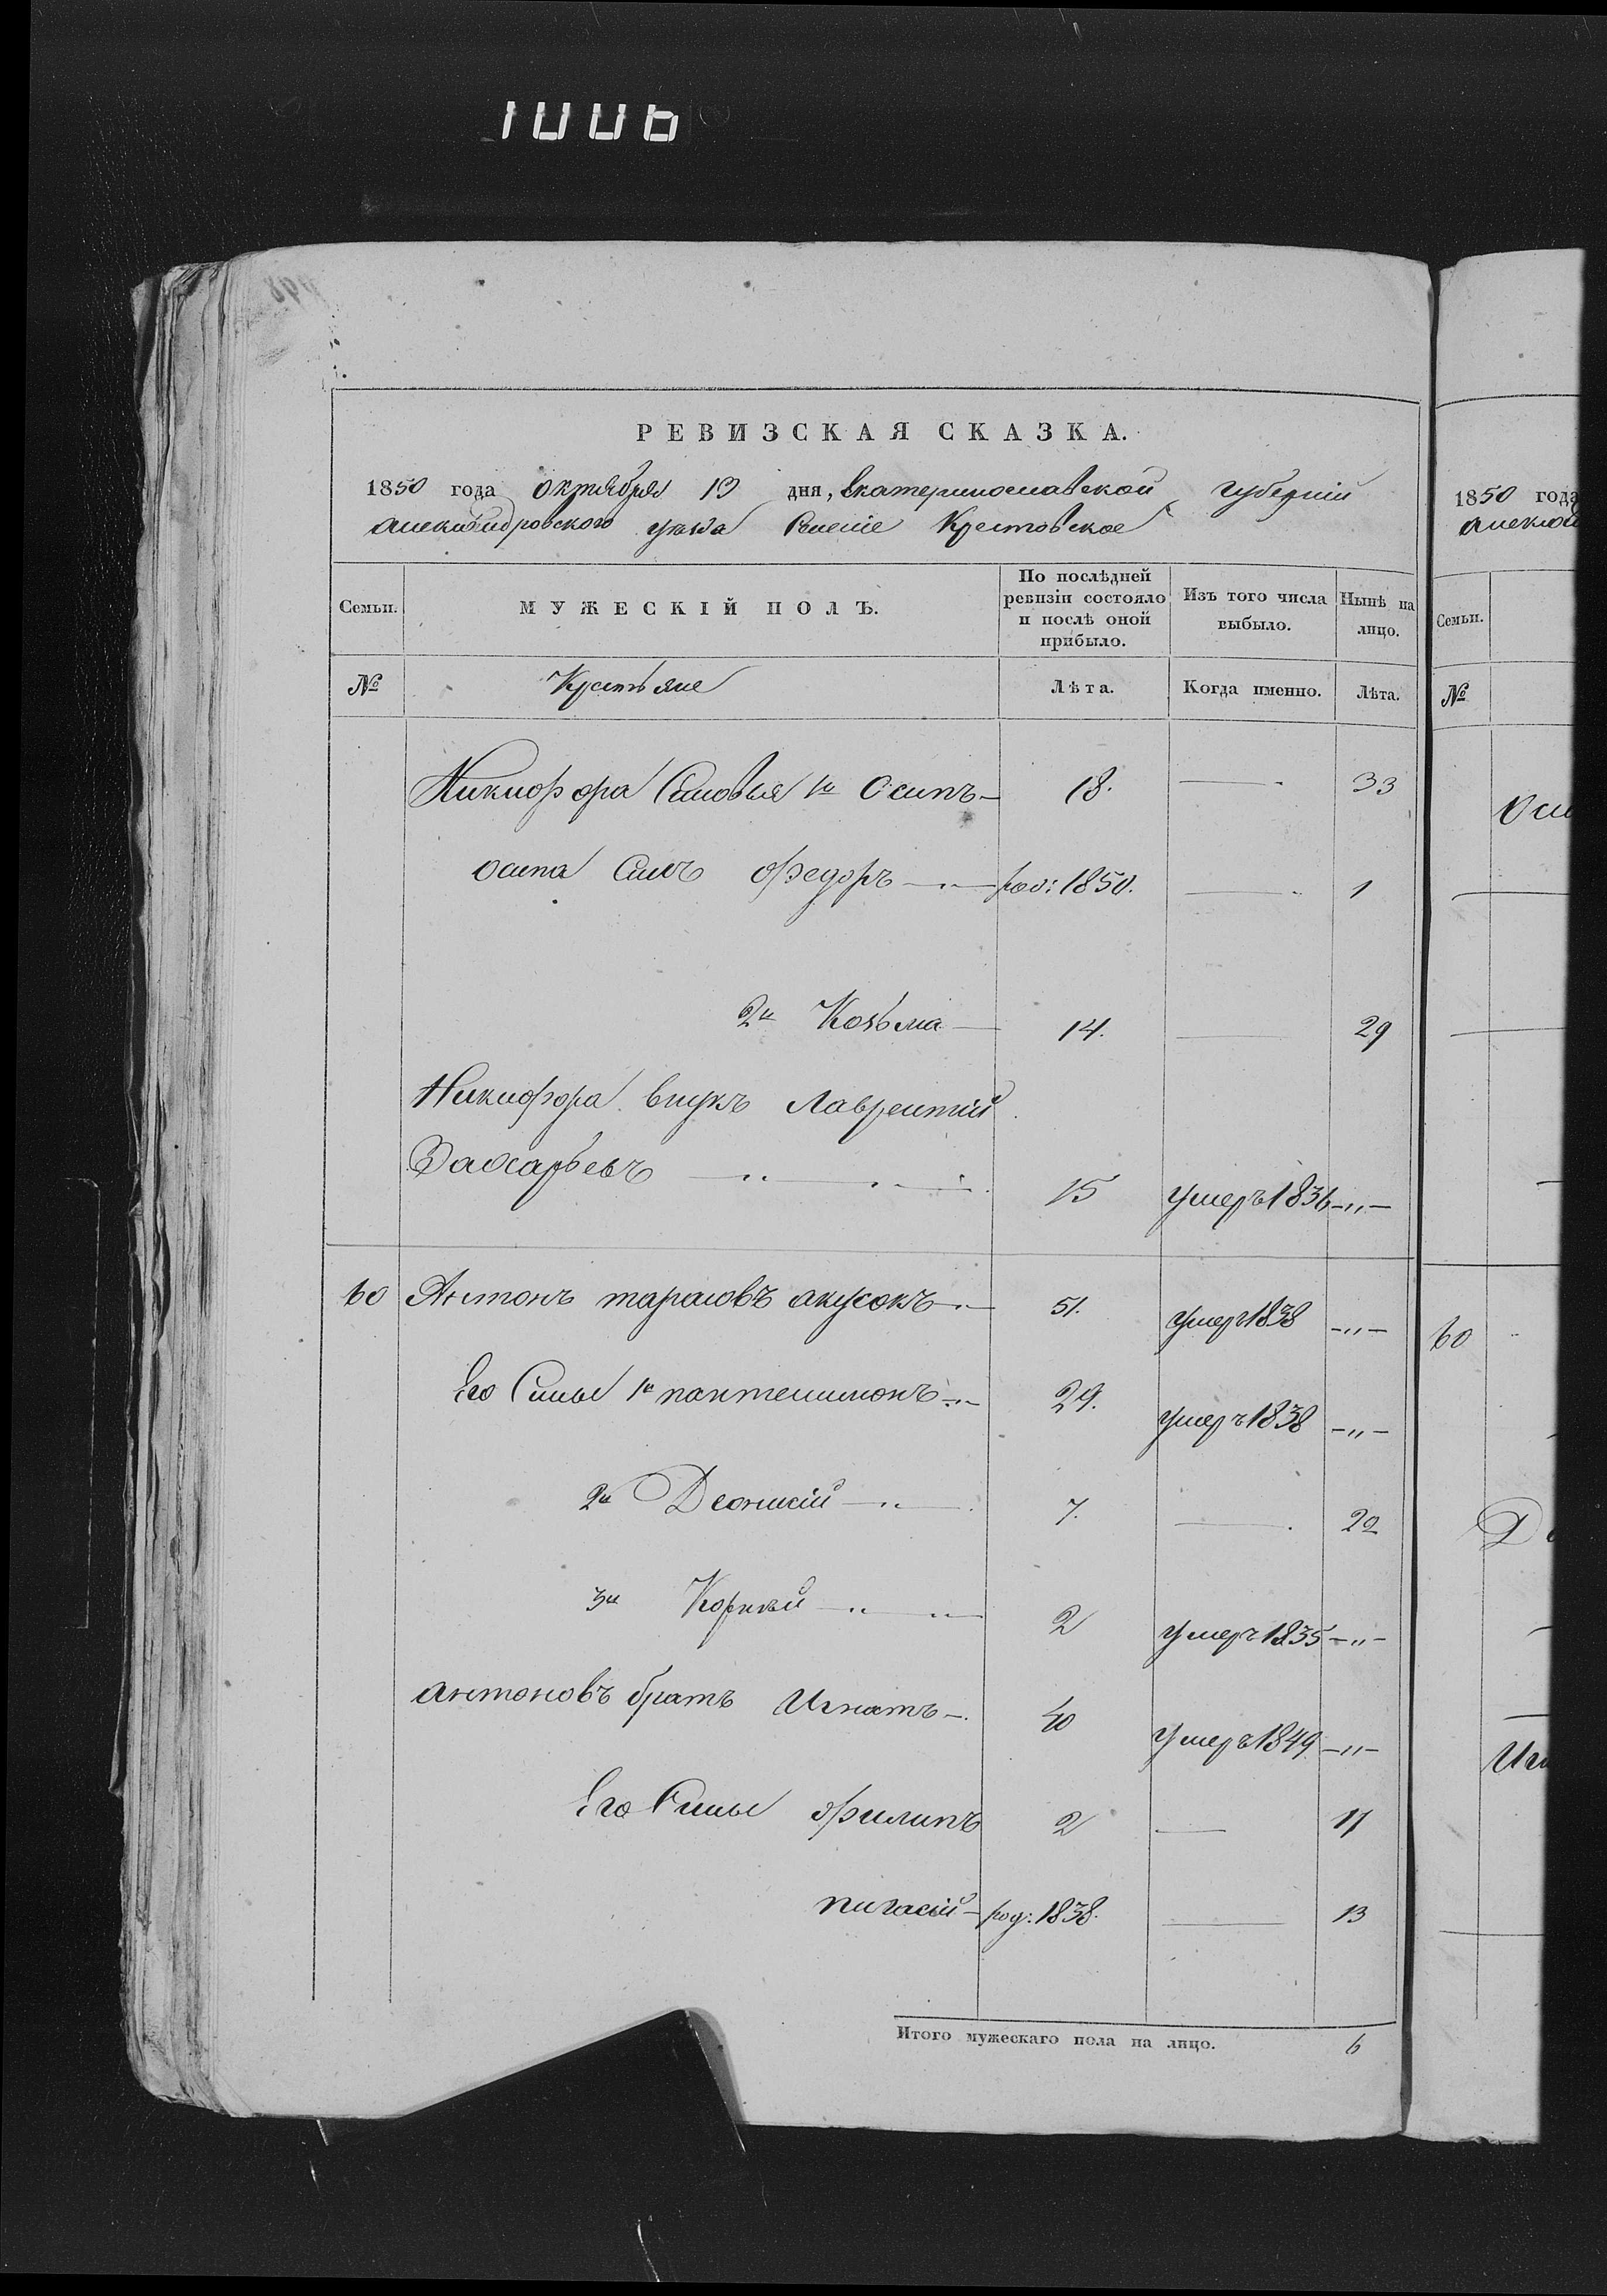 1006
РЕВИЗСКАЯ СКАЗКА.
1850 года октября 19 дня, Екатеринославской губерніи
Александровского уезда Селеніе Крестовское
Семьи. МУЖЕСКІЙ ПОЛЪ. По послѣдней ревизіи состояло и послѣ оной прибыло. Изъ того числа выбыло. Нынѣ на лицо.
№ Крестьяне Лѣта. Когда именно. Лѣта.
Никифора Сыновья 1й Осипъ 18. 33
Осипа Сынъ Федоръ род: 1850. 1
2й Козьма 14. 29
Никифора внукъ Лаврентій
Захарьевъ 15 умеръ 1836 -"-
60 Антонъ тарасовъ 51. умеръ 1838 -"-
Его Сыны 1й пантелимонъ 29. умеръ 1838 -"-
2й Деонисій 7. 22
3й Корнѣй 2 умеръ 1835 -"-
Антоновъ братъ Игнатъ 40 умеръ 1849 -"-
Его Сыны Филипъ 2 17
род: 1838. 13
Итого мужескаго пола на лицо. 6
1850 года
Семьи.
№
60